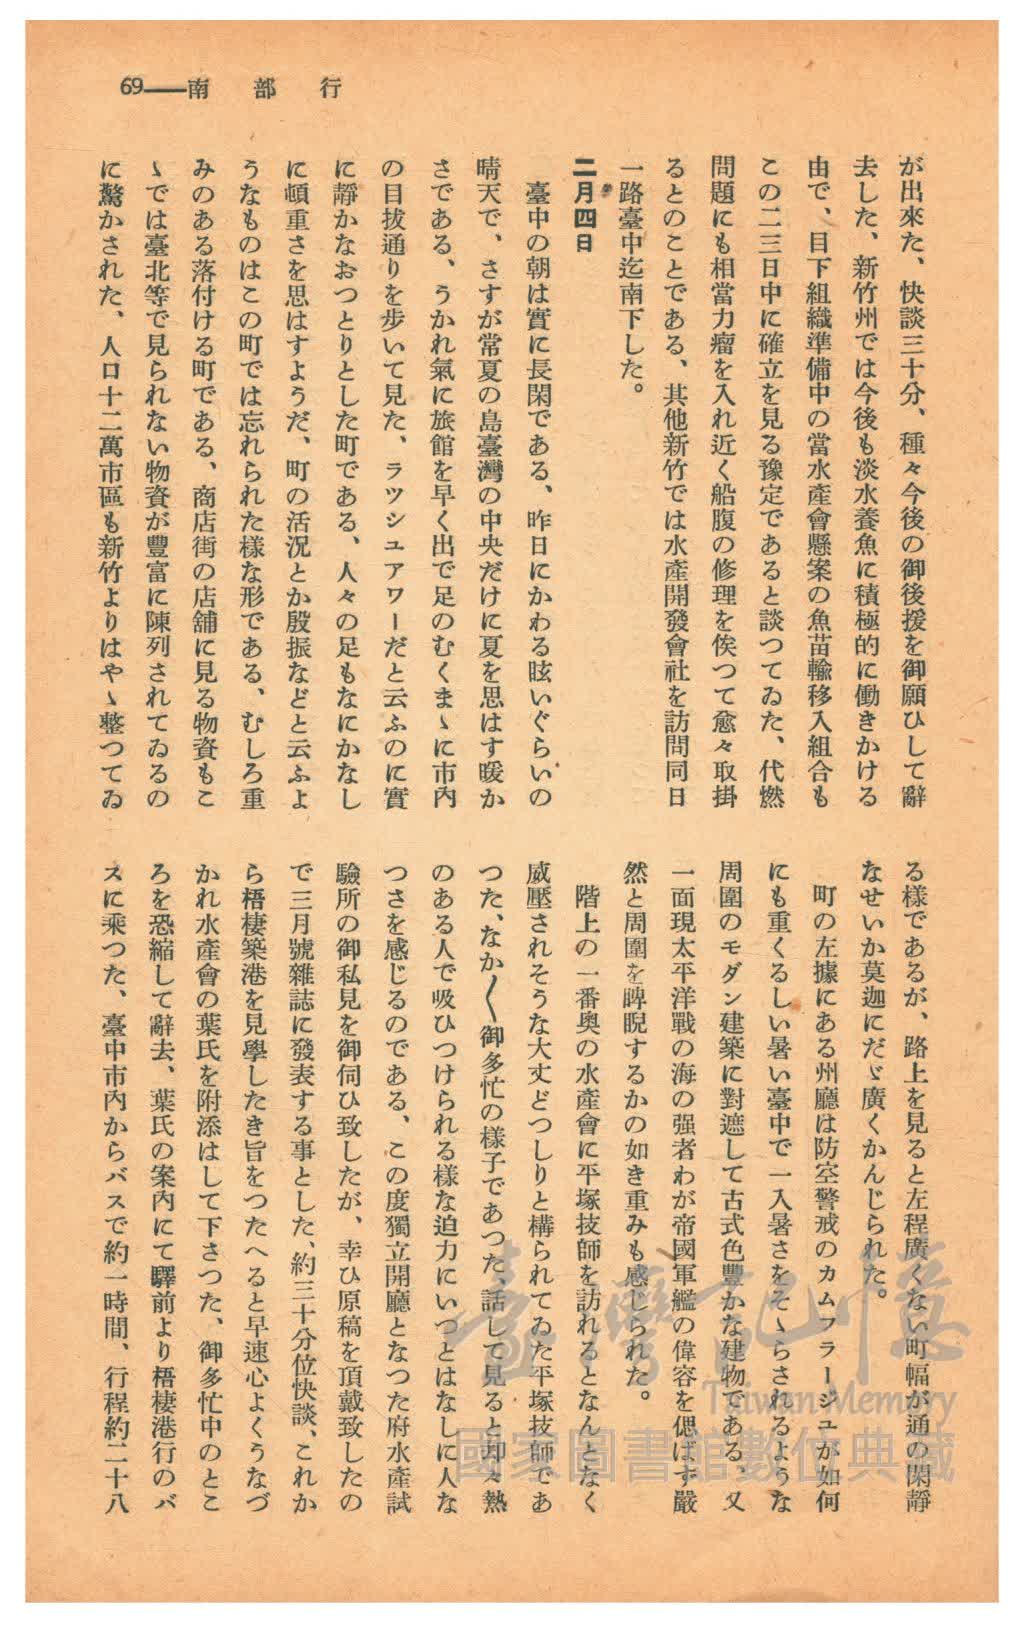 69——南部行
が出來た、快談三十分、種々今後の御後援を御願ひして辭
去した、新竹州では今後も淡水養魚に積極的に働きかける
由で、目下組織準備中の當水產會懸案の魚苗輸移入組合も
この二三日中に確立を見る豫定であると談つてゐた、代燃
問題にも相當力瘤を入れ近く船腹の修理を俟つて愈々取掛
るとのことである、其他新竹では水產開發會社を訪問同日
一路臺中迄南下した。
二月四日
臺中の朝は實に長閑である、昨日にかわる眩いぐらいの
晴天で、さすが常夏の島臺灣の中央だけに夏を思はす暖か
さである、うかれ氣に旅館を早く出で足のむくまゝに市內
の目拔通りを步いて見た、ラツシユアワーだと云ふのに實
に靜かなおつとりとした町である、人々の足もなにかなし
に頓重さを思はすようだ、町の活況とか殷振などと云ふよ
うなものはこの町では忘れられた樣な形である、むしろ重
みのある落付ける町である、商店街の店舖に見る物資もこ
ゝでは臺北等で見られない物資が豐富に陳列されてゐるの
に驚かされた、人口十二萬市區も新竹よりはやゝ整つてゐ
る樣であるが、路上を見ると左程廣くない町幅が通の閑靜
なせいか莫迦にだゞ廣くかんじられた。
町の左據にある州廳は防空警戒のカムフラージユが如何
にも重くるしい暑い臺中で一入暑さをそゝらされるような
周圍のモダン建築に對遮して古式色豐かな建物である、又
一面現太平洋戰の海の强者わが帝國軍艦の偉容を偲ばす嚴
然と周圍を睥睨するかの如き重みも感じられた。
階上の一番奧の水產會に平塚技師を訪れるとなんとなく
威壓されそうな大丈どつしりと構られてゐた平塚技師であ
つた、なか〱御多忙の樣子であつた、話して見ると却々熱
のある人で吸ひつけられる樣な迫力にいつとはなしに人な
つさを感じるのである、この度獨立開廳となつた府水產試
驗所の御私見を御伺ひ致したが、幸ひ原稿を頂戴致したの
で三月號雜誌に發表する事とした、約三十分位快談、これか
ら梧棲築港を見學したき旨をつたへると早速心よくうなづ
かれ水產會の葉氏を附添はして下さつた、御多忙中のとこ
ろを恐縮して辭去、葉氏の案內にて驛前より梧棲港行のバ
スに乘つた、臺中市內からバスで約一時間、行程約二十八
臺灣記憶
Taiwan Memory
國家圖書館數位典藏